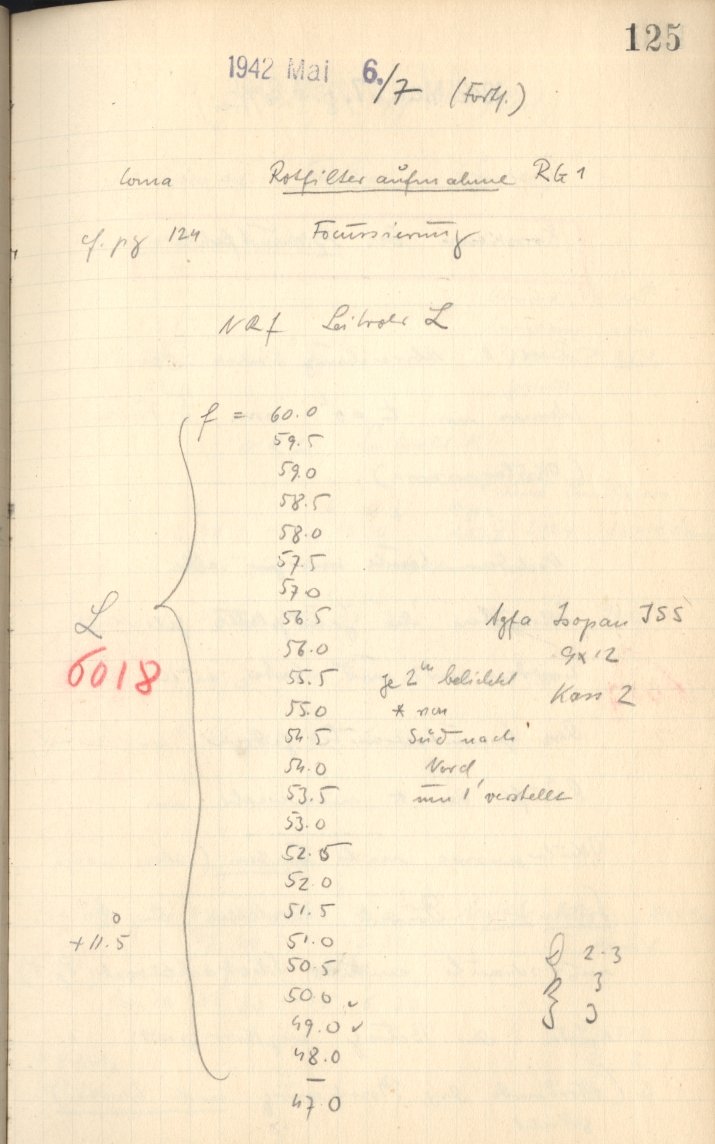 125
1942 Mai 6./7 (Forts.)
Coma Rotfilteraufnahme RG 1
cf. pg 124 Focussierung
NRf L
f = 60.0
59.5
59.0
58.5
58.0
57.5
57.0
56.5 Agfa Isopan ISS
56.0 9x12
L
6018
55.5 je 2 belichtet Kass 2
55.0 * von
54.5 Süd nach
54.0 Nord
53.5 um 1' verstellt
53.0
52.5
52.0
51.5
+11.5°
51.0
50.5 2-3
50.0 ✓ 3
49.0 ✓ 3
48.0
—
47.0